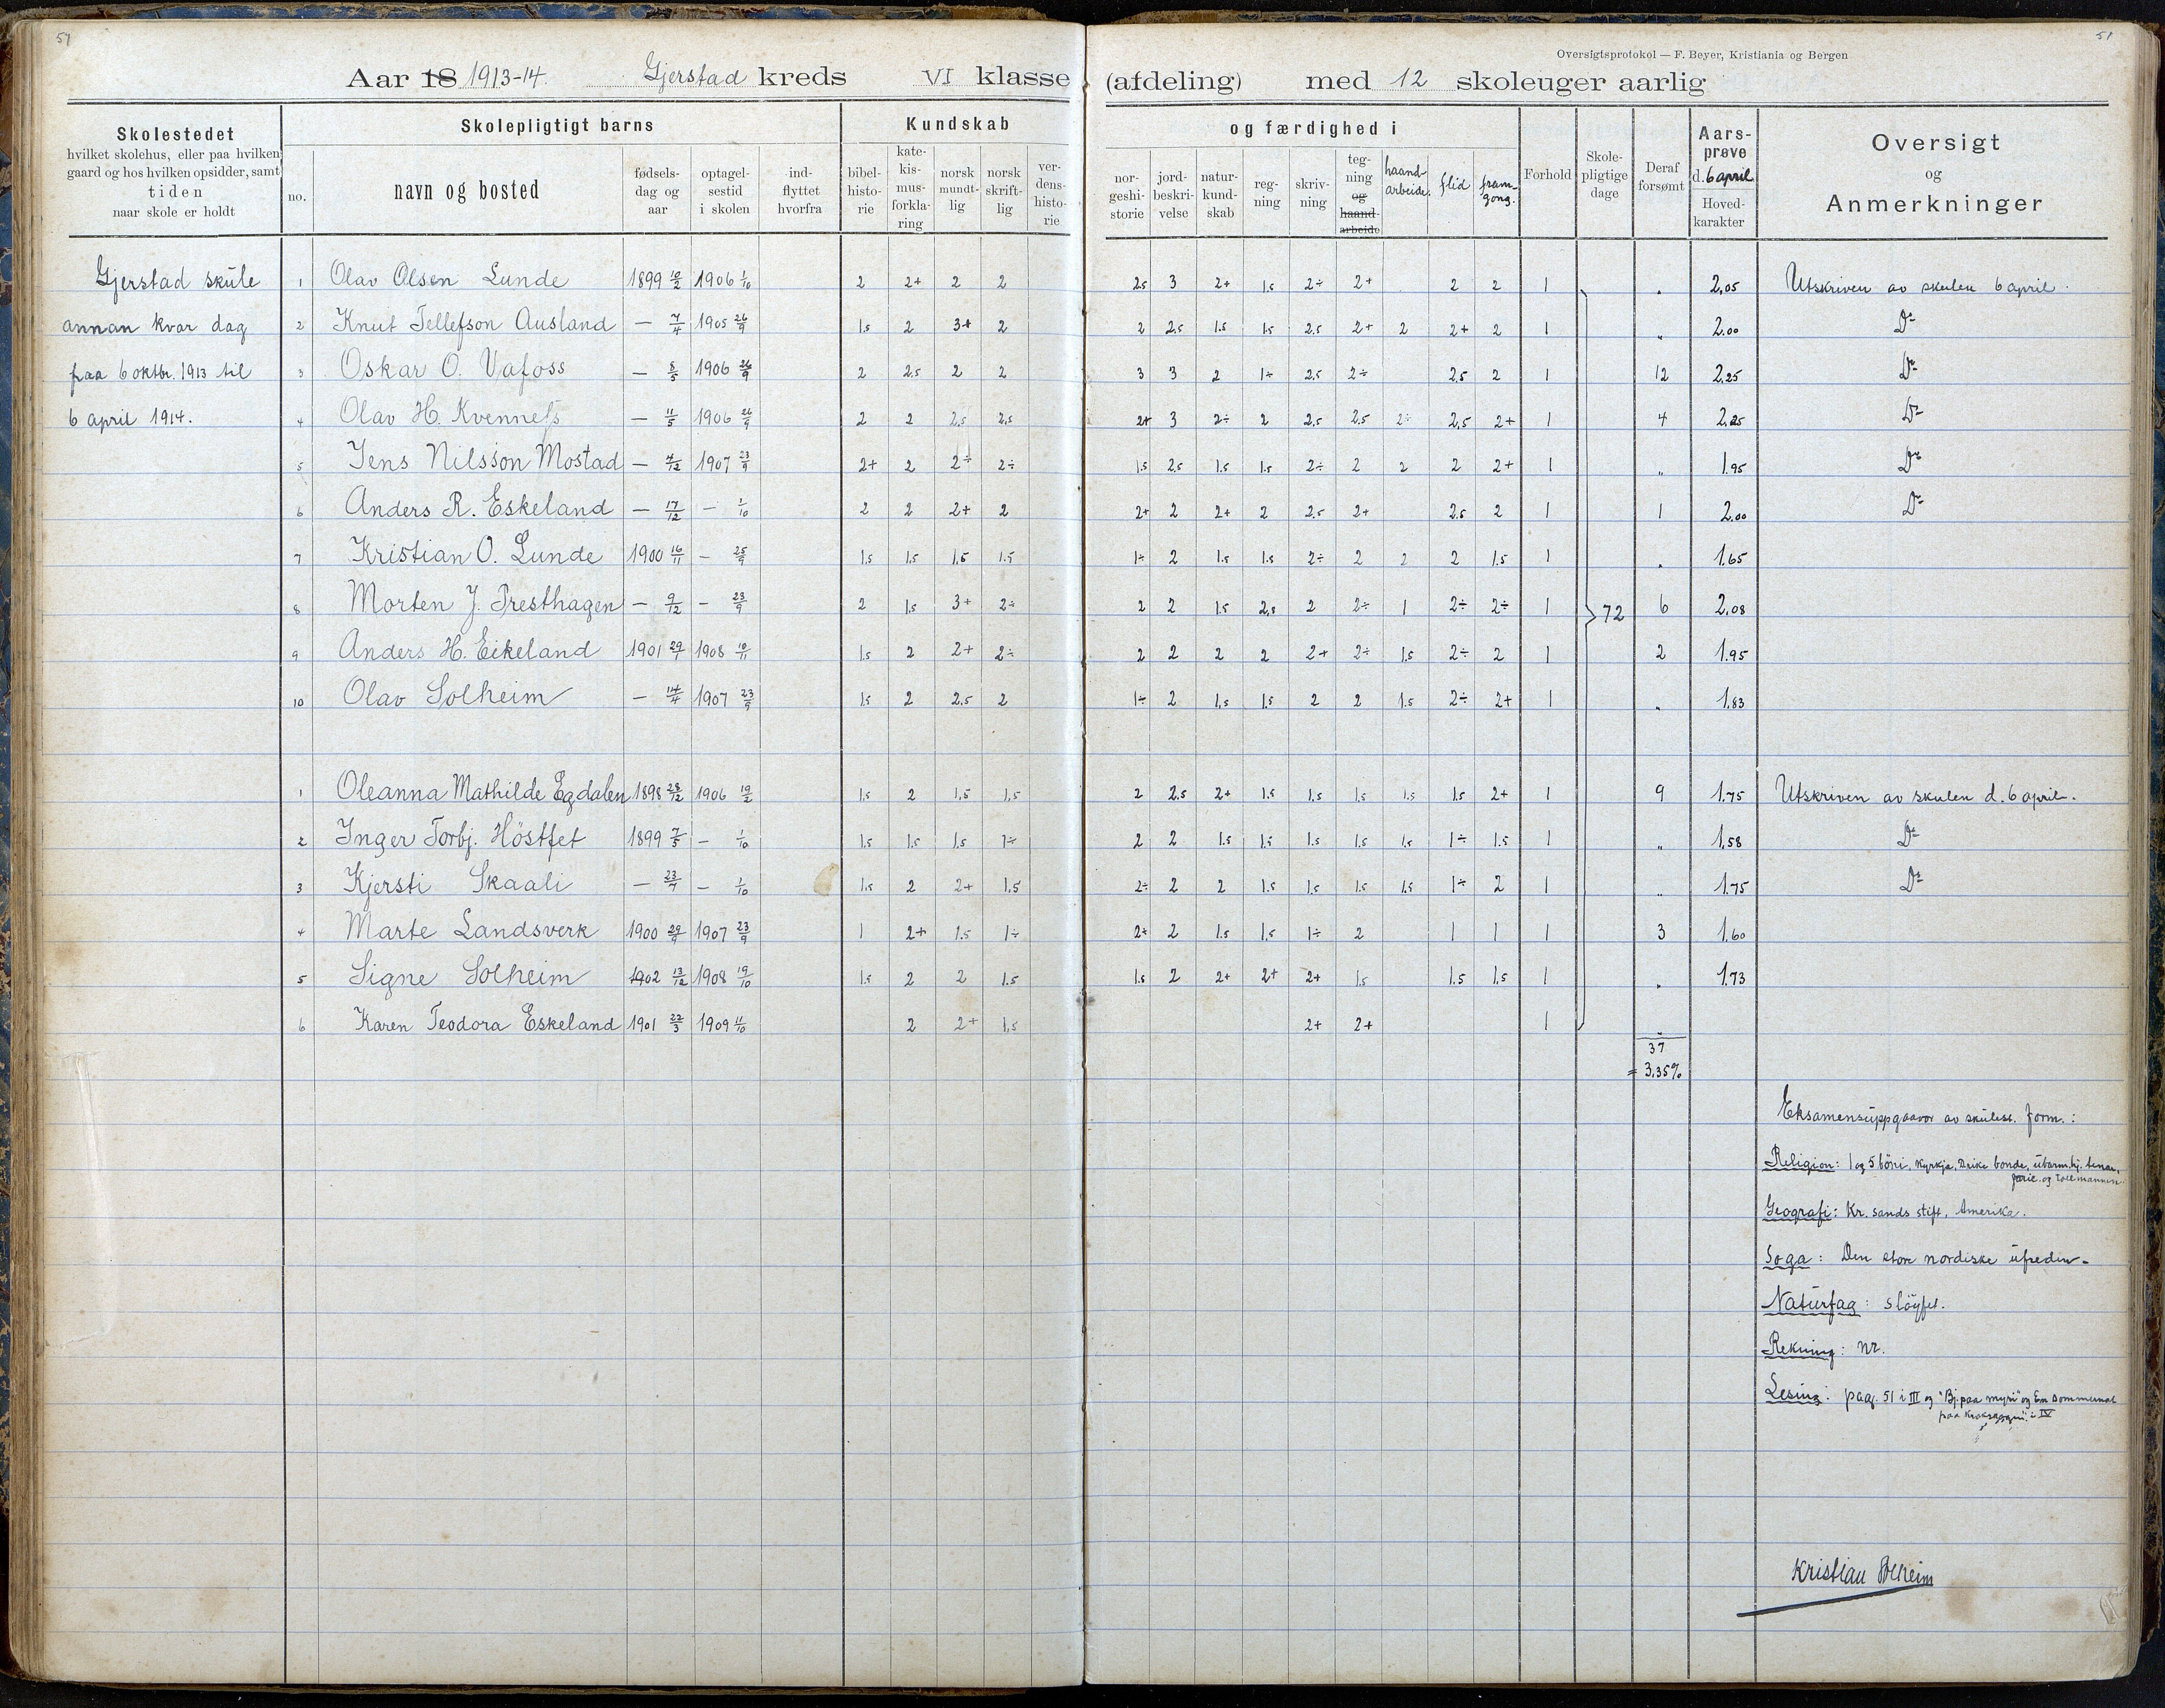 57
51
Oversigtsprotokol — F. Beyer, Kristiania og Bergen
Aar 18 1913-14. Gjerstad kreds VI klasse (afdeling) med 12 skoleuger aarlig
Skolestedet
hvilket skolehus, eller paa hvilken
gaard og hos hvilken opsidder, samt
tiden
naar skole er holdt
Skolepligtigt barns
no.
navn og bosted
fødsels-
dag og
aar
optagel-
sestid
i skolen
ind-
flyttet
hvorfra
Kundskab
bibel-
histo-
rie
kate-
kis-
mus-
forkla-
ring
norsk
mundt-
lig
norsk
skrift-
lig
ver-
dens-
histo-
rie
og færdighed i
nor-
geshi-
storie
jord-
beskri-
velse
natur-
kund-
skab
reg-
ning
skriv-
ning
teg-
ning
og
haand-
arbeide
haand-
arbeide.
flid
fram-
gong.
Forhold
Skole-
pligtige
dage
Deraf
forsømt
Aars-
prøve
d. 6 april
Hoved-
karakter
Oversigt
og
Anmerkninger
Gjerstad skule
annan kvar dag
paa 6 oktbr. 1913 til
6 april 1914.
1 Olav Olsen Lunde 1899 10/2 1906 1/10 2 2+ 2 2 2.5 3 2+ 1.5 2÷ 2+ 2 2 1 „ 2,05 Utskriven av skulen 6 april.
2 Knut Tellefson Ausland — 7/4 1905 26/9 1.5 2 3+ 2 2 2.5 1.5 1.5 2.5 2+ 2 2+ 2 1 „ 2.00 Do
3 Oskar O. Vafoss — 8/5 1906 26/9 2 2.5 2 2 3 3 2 1÷ 2.5 2÷ 2.5 2 1 12 2.25 Do
4 Olav H. Kvenness — 11/5 1906 26/9 2 2 2.5 2.5 2+ 3 2÷ 2 2.5 2.5 2÷ 2,5 2+ 1 4 2.25 Do
5 Jens Nilsson Mostad — 4/12 1907 23/9 2+ 2 2÷ 2÷ 1.5 2.5 1.5 1.5 2÷ 2 2 2 2+ 1 „ 1.95 Do
6 Anders R. Eskeland — 17/12 — 1/10 2 2 2+ 2 2+ 2 2+ 2 2.5 2+ 2.5 2 1 1 2.00 Do
7 Kristian O. Lunde 1900 16/11 — 25/9 1.5 1.5 1.5 1.5 1÷ 2 1.5 1.5 2÷ 2 2 2 1.5 1 „ 1.65
8 Morten J. Presthagen — 9/12 — 23/9 2 1.5 3+ 2÷ 2 2 1.5 2.5 2 2÷ 1 2÷ 2÷ 1 72 6 2,08
9 Anders H. Eikeland 1901 29/1 1908 10/11 1.5 2 2+ 2÷ 2 2 2 2 2+ 2÷ 1.5 2÷ 2 1 2 1.95
10 Olav Solheim — 14/4 1907 23/9 1.5 2 2.5 2 1÷ 2 1.5 1.5 2 2 1.5 2÷ 2+ 1 „ 1.83
1 Oleanna Mathilde Egdalen 1898 28/12 1906 19/2 1.5 2 1.5 1.5 2 2.5 2+ 1.5 1.5 1.5 1.5 1.5 2+ 1 9 1.75 Utskriven av skulen d. 6 april.
2 Inger Torbj. Höstfet 1899 7/5 — 1/10 1.5 1.5 1.5 1÷ 2 2 1.5 1.5 1.5 1.5 1.5 1÷ 1.5 1 „ 1,58 Do
3 Kjersti Skaali — 23/7 — 1/10 1.5 2 2+ 1.5 2÷ 2 2 1.5 1.5 1.5 1.5 1÷ 2 1 „ 1.75 Do
4 Marte Landsverk 1900 29/9 1907 23/9 1 2+ 1.5 1÷ 2÷ 2 1.5 1.5 1÷ 2 1 1 1 3 1.60
5 Signe Solheim 1902 13/12 1908 19/10 1.5 2 2 1.5 1.5 2 2+ 2+ 2+ 1.5 1.5 1.5 1 „ 1.73
6 Karen Teodora Eskeland 1901 22/3 1909 11/10 2 2+ 1.5 2+ 2+ 1 „
37
= 3,35%
Eksamensuppgaavor av skulest. form.:
Religion: 1 og 5 böni, kyrkja, Drike bonde, ubarmhj. tenar,
faris. og tollmannen.
Geografi: Kr.sands stift, Amerika.
Soga: Den store nordiske ufreden.
Naturfag: slöyfet.
Rekning: nr.
Lesing: pag. 51 i III og "Bj. paa myri" og Ein sommernat
paa i IV
Kristian Solheim